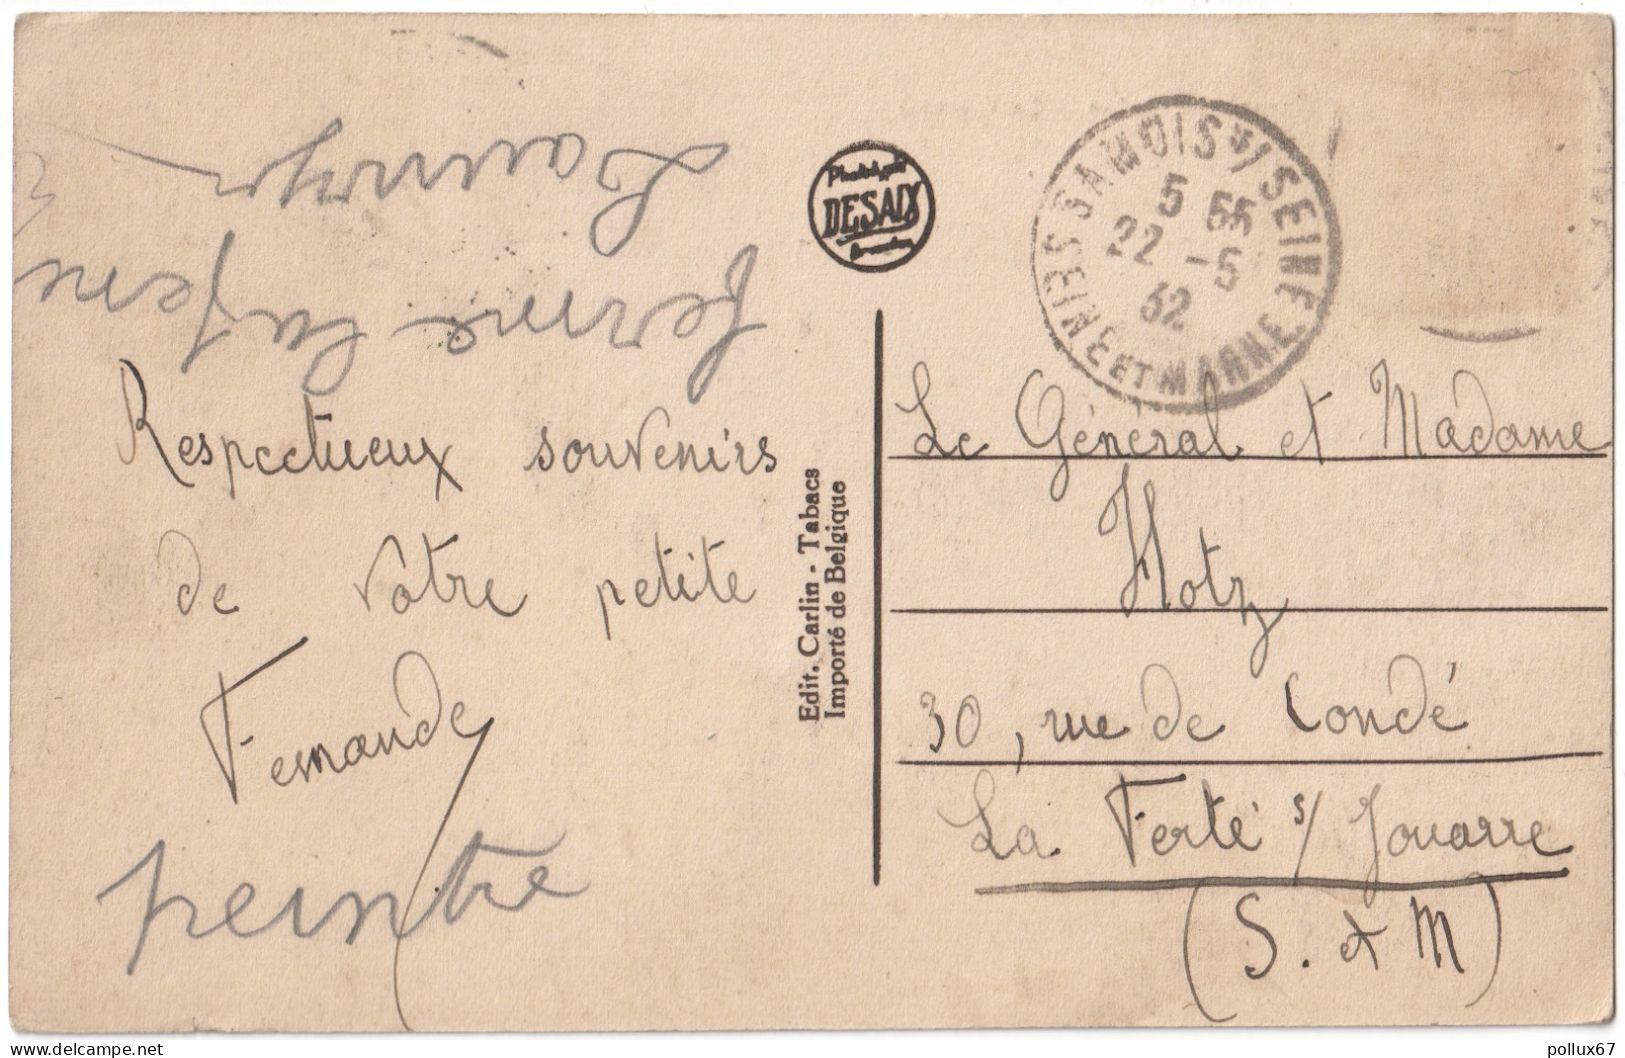 SAMOIS S/SEINE
5 55
22 -5
32
SEINE ET MARNE
DESAIX
Respectueux souvenirs
de votre petite
Fernande
peintre
Edit. Carlin - Tabacs
Importé de Belgique
Le Général et Madame
Hotz
30, rue de Condé
La Ferté s/ Jouarre
(S. et M)
delcampe.net
pollux67